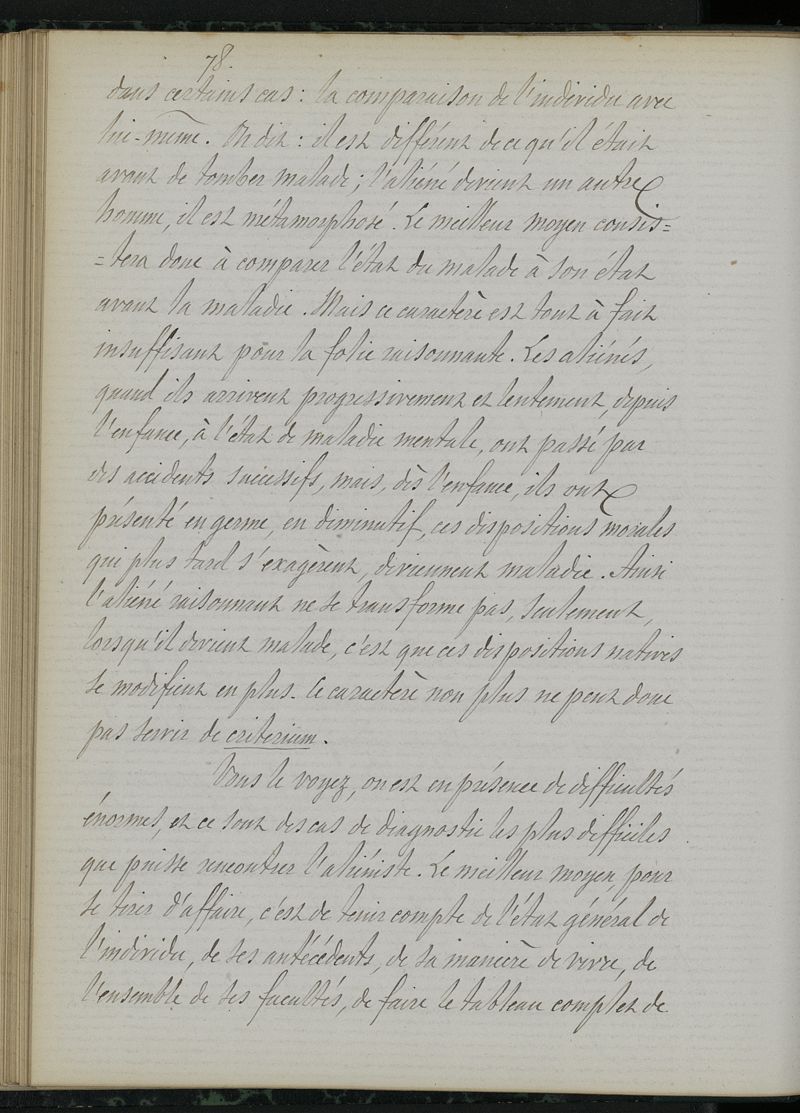 78.
dans certains cas : la comparaison de l'individu avec
lui-même. On dit : il est différent de ce qu'il était
avant de tomber malade ; l'aliéné devient un autre
homme, il est métamorphosé. Le meilleur moyen consis=
=tera donc à comparer l'état du malade à son état
avant la maladie. Mais ce caractère est tout à fait
insuffisant pour la folie raisonnante. Les aliénés,
quand ils arrivent progressivement et lentement, depuis
l'enfance, à l'état de maladie mentale, ont passé par
des accidents successifs, mais, dès l'enfance, ils ont
présenté en germe, en diminutif, ces dispositions morales
qui plus tard s'exagèrent, deviennent maladie. Ainsi
l'aliéné raisonnant ne se transforme pas, seulement,
lorsqu'il devient malade, c'est que ces dispositions natives
se modifient en plus. Ce caractère non plus ne peut donc
pas servir de criterium.
Vous le voyez, on est en présence de difficultés
énormes, et ce sont des cas de diagnostic les plus difficiles
que puisse rencontrer l'aliéniste. Le meilleur moyen, pour
se tirer d'affaire, c'est de tenir compte de l'état général de
l'individu, de ses antécédents, de sa manière de vivre, de
l'ensemble de ses facultés, de faire le tableau complet de